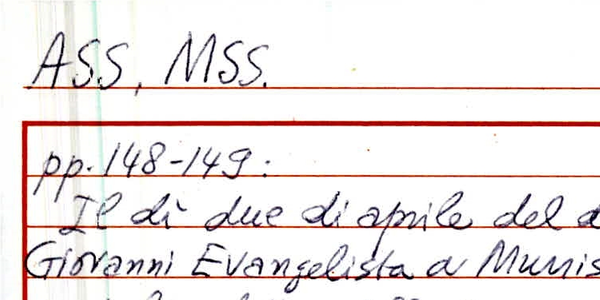 ASS, MSS.
pp. 148-149:
Il dì due di aprile del
Giovanni Evangelista a